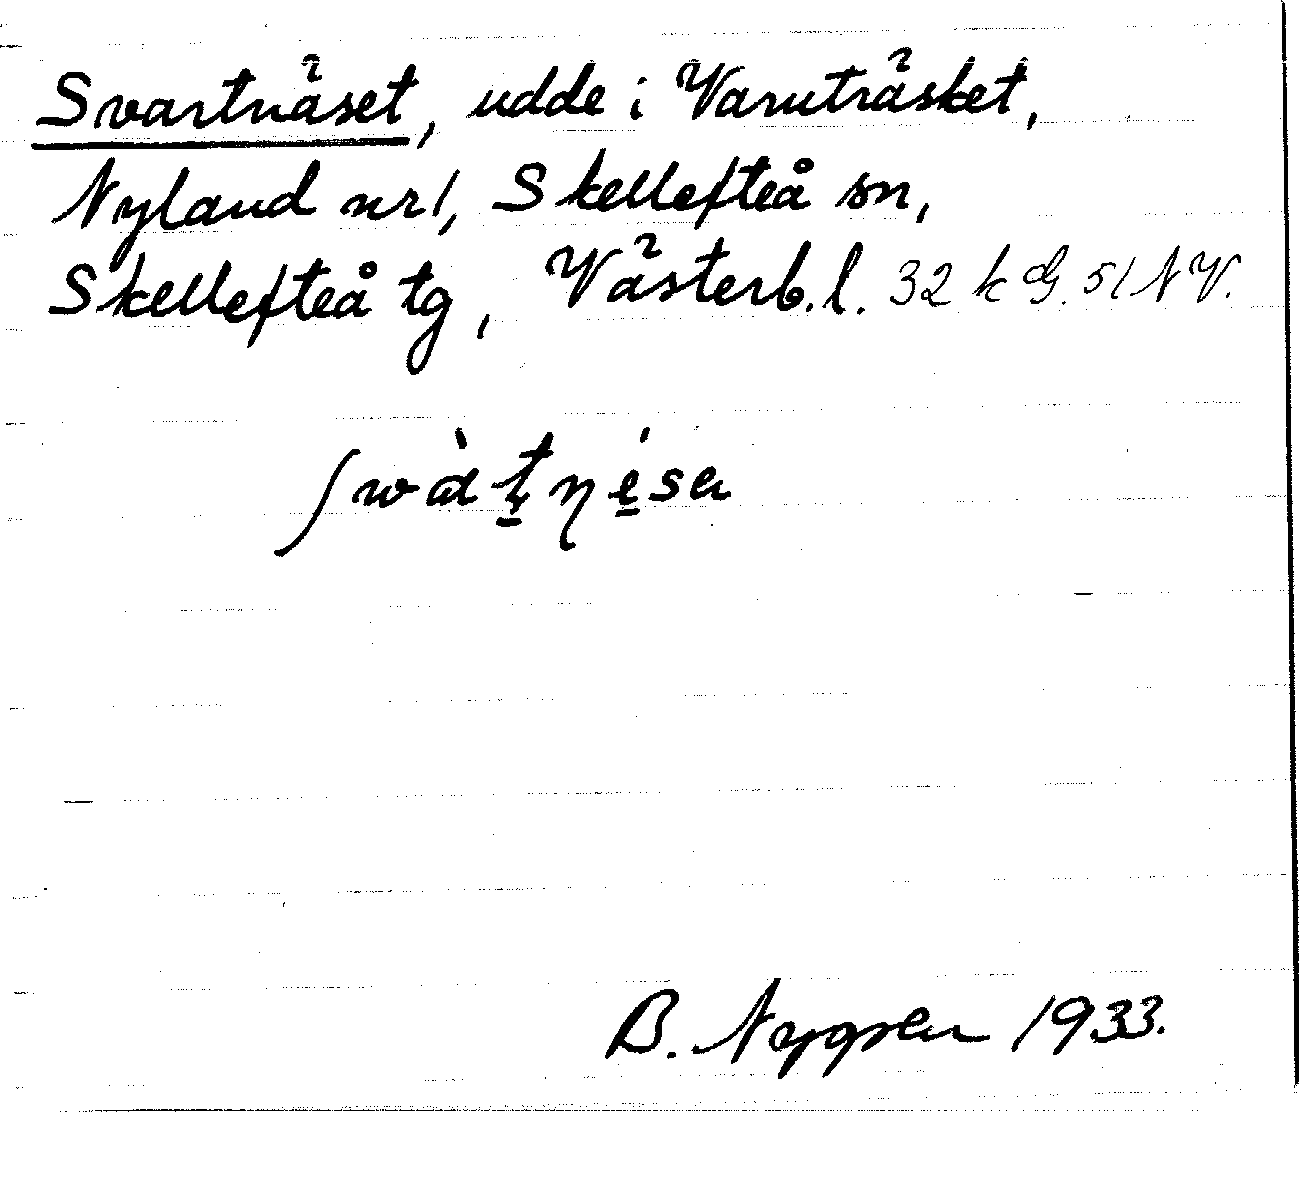 Svartnäset, udde i Varuträsket,
Nyland nr 1, Skellefteå sn,
Skellefteå tg, Västerb. l. 32 k d G. 51 NV.
B. Nygren 1933.